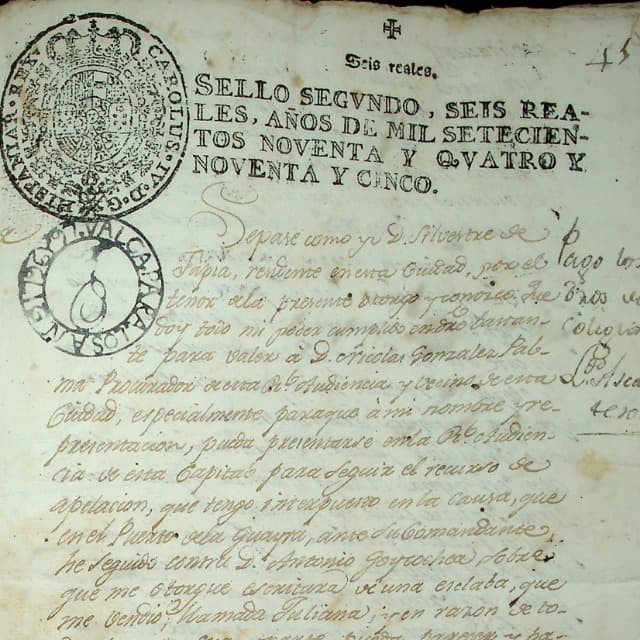 45
Seis reales.
SELLO SEGVNDO, SEIS REA-
LES, AÑOS DE MIL SETECIEN-
TOS NOVENTA Y QVATRO Y
NOVENTA Y CINCO.
CAROLUS IV D.G. HISPANIAR. REX
Sepase como yo D. Silvestre de
Tapia, residente en esta Ciudad, por el
tenor de la presente otorgo y conozco, que
doy todo mi poder cumplido en dro bastan-
te para valer à D. Nicolas Gonzalez Pal-
ma Procurador de esta Rl. Audiencia y vecino de esta
Ciudad, especialmente paraque à mi nombre y re-
presentacion, pueda presentarse en la Rl. Audien-
cia de esta Capital para seguir el recurso de
apelacion, que tengo interpuesto en la causa, que
en el Puerto de la Guayra, ante su Comandante,
he seguido contra D. Antonio Goyrochea sobre
que me otorgue escritura de una esclaba, que
me vendio, llamada Juliana; y en razon de to-
Pago los
dros de
Colegia